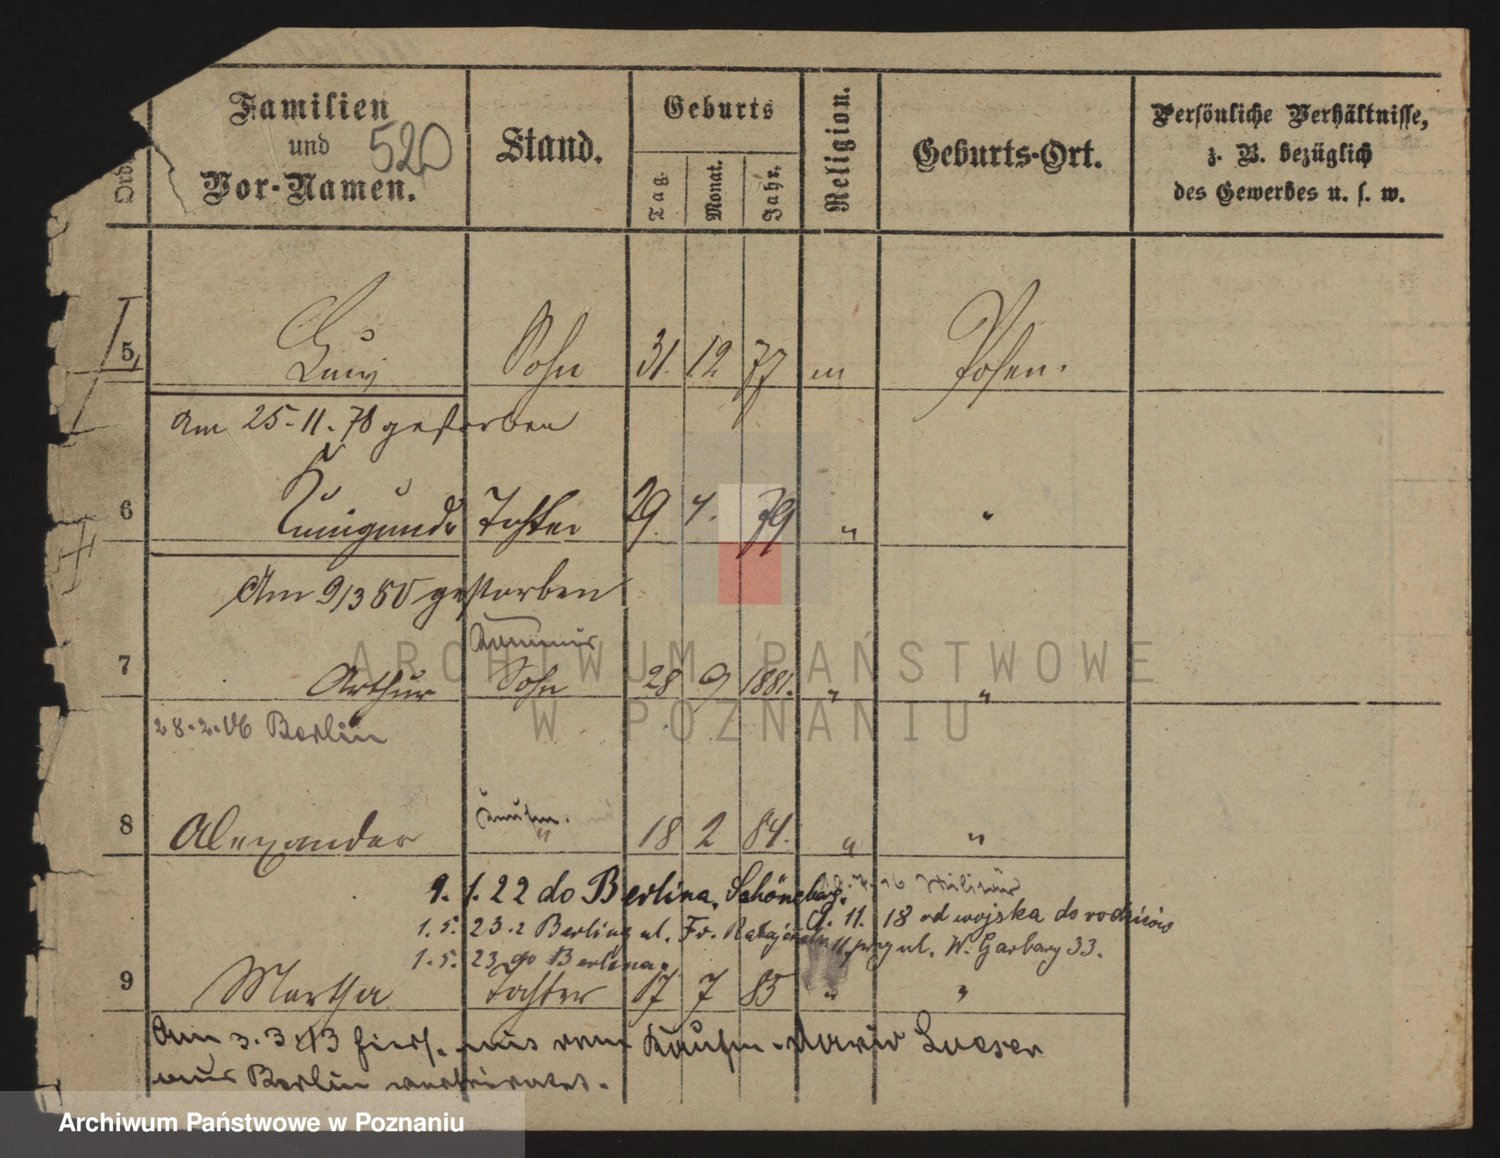 Familien
und
Vor-Namen.
520
Stand.
Geburts
Tag.
Monat.
Jahr.
Religion.
Geburts-Ort.
Persönliche Verhältnisse,
z. B. bezüglich
des Gewerbes u. s. w.
5, Sohn 31. 12 77 m Posen.
Am 25-11-78 gestorben
6 Kunigunde Tochter 29. 4. 79 " "
Am 9/3 80 gestorben
7 Arthur Sohn 28 9 1881. " "
28.2.06 Berlin
8 Alexander Kaufm. " 18 2 84. " "
9. 1. 22 do Berlina, Schöneberg. Militär
1. 5. 23 z Berlina ul. Fr. Ratajczaka 11 11. 18 od wojska do rodziców
1. 5. 23 do Berlina. przy ul. W. Garbary 33.
9 Martha Tochter 17 7 85 " "
Am 3. 3. 13 hiers. mit dem Kaufm. Loeser
aus Berlin verheiratet.
ARCHIWUM PAŃSTWOWE
W POZNANIU
Archiwum Państwowe w Poznaniu